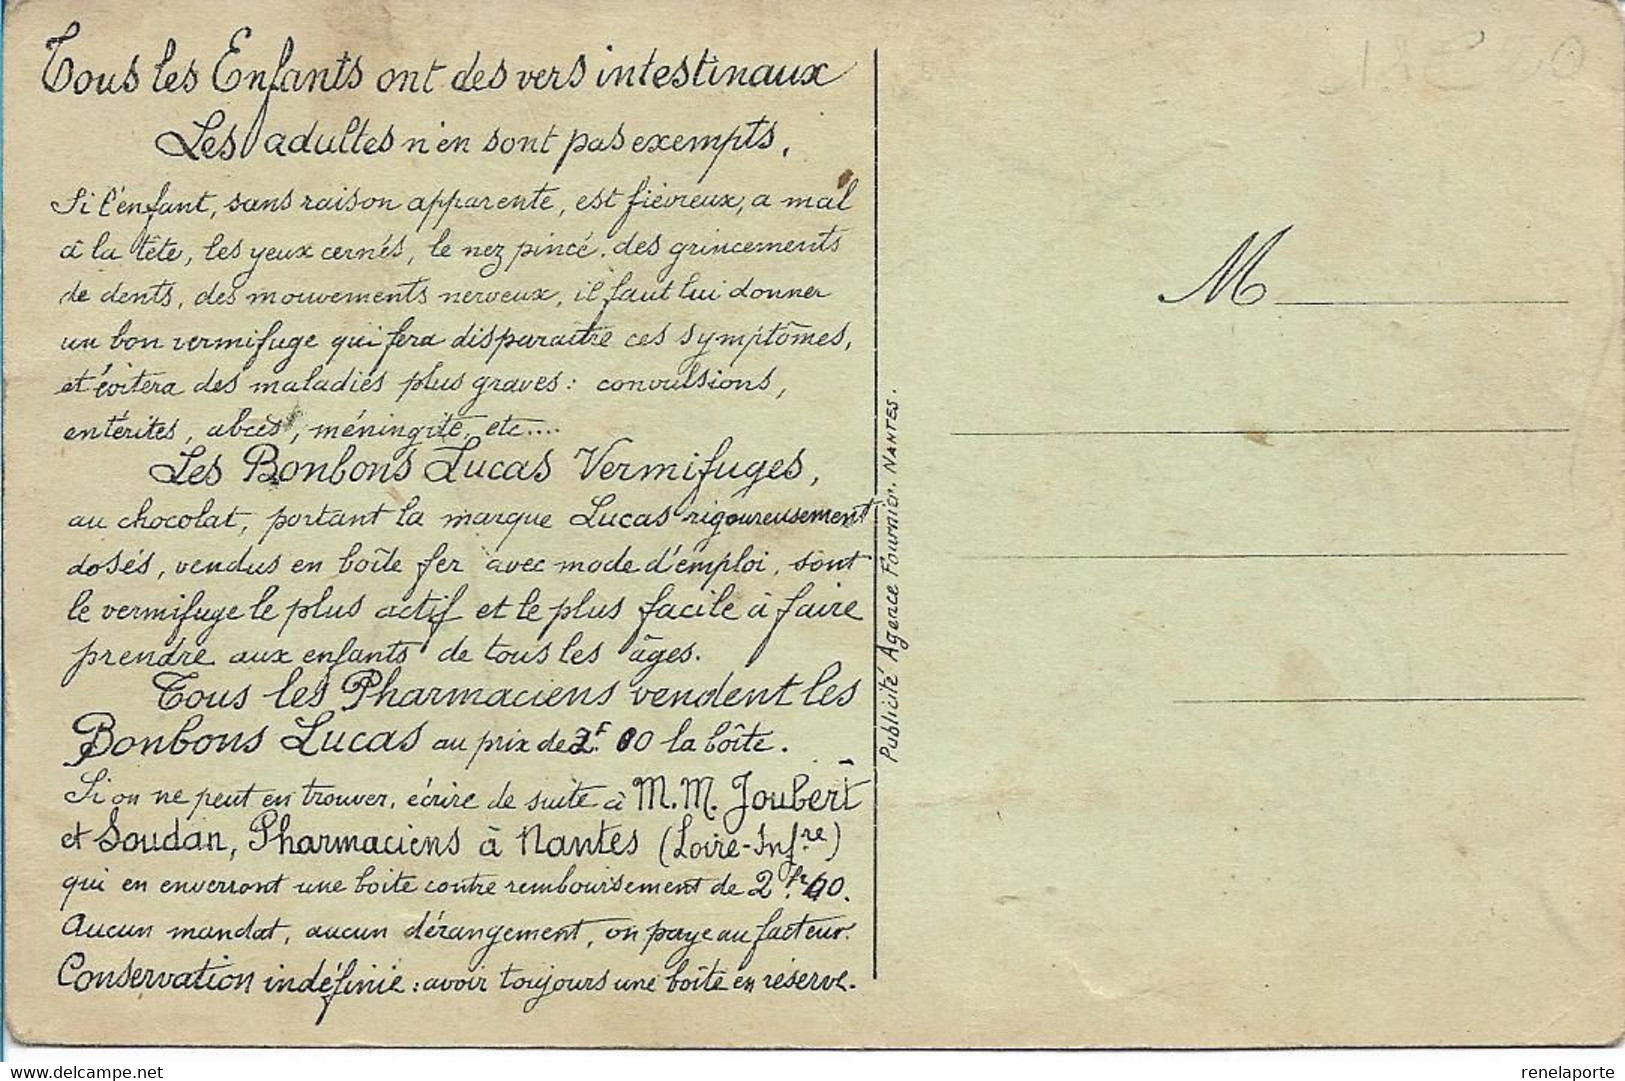 Tous les Enfants ont des vers intestinaux
Les adultes n'en sont pas exempts.
Si l'enfant, sans raison apparente, est fiévreux, a mal
à la tête, les yeux cernés, le nez pincé. des grincements
de dents, des mouvements nerveux, il faut lui donner
un bon vermifuge qui fera disparaître ces symptômes,
et évitera des maladies plus graves : convulsions,
entérites, abcès, méningite, etc....
Les Bonbons Lucas Vermifuges,
au chocolat, portant la marque Lucas rigoureusement
dosés, vendus en boîte fer avec mode d'emploi, sont
le vermifuge le plus actif et le plus facile à faire
prendre aux enfants de tous les âges.
Tous les Pharmaciens vendent les
Bonbons Lucas au prix de 2F. 00 la boîte.
Si on ne peut en trouver, écrire de suite à M.M. Joubert
et Soudan, Pharmaciens à Nantes (Loire-Infre)
qui en enverront une boite contre remboursement de 2fr.60.
Aucun mandat, aucun dérangement, on paye au facteur.
Conservation indéfinie : avoir toujours une boîte en réserve.
Publicité Agence Fournier. NANTES.
M
delcampe.net
renelaporte